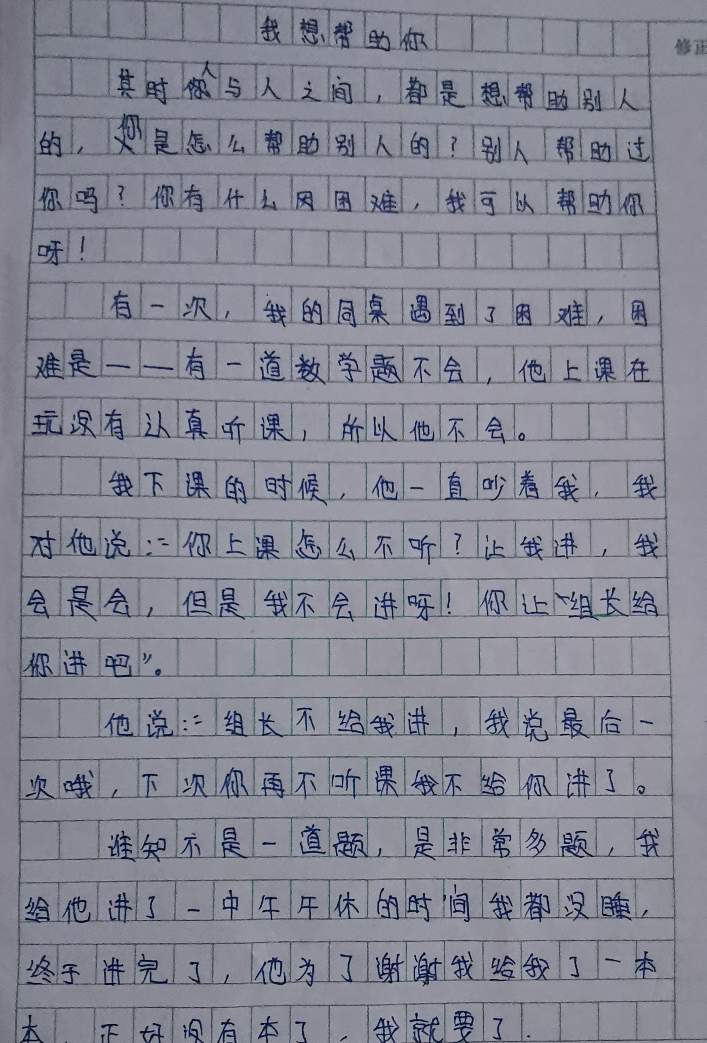 我想帮助你
修正
其时人与人之间，都是想帮助别人
的，你是怎么帮助别人的？别人帮助过
你吗？你有什么因困难，我可以帮助你
呀！
有一次，我的同桌遇到了困难，困
难是——有一道数学题不会，他上课在
玩没有认真听课，所以他不会。
我下课的时候，他一直吵着我，我
对他说：“你上课怎么不听？让我讲，我
会是会，但是我不会讲呀！你让组长给
你讲吧”。
他说：“组长不给我讲，我说最后一
次哦，下次你再不听课我不给你讲了。
谁知不是一道题，是非常多题，我
给他讲了一中午午休的时间我都没睡，
终于讲完了，他为了谢谢我给我了一本
本，正好没有本了，我就要了.